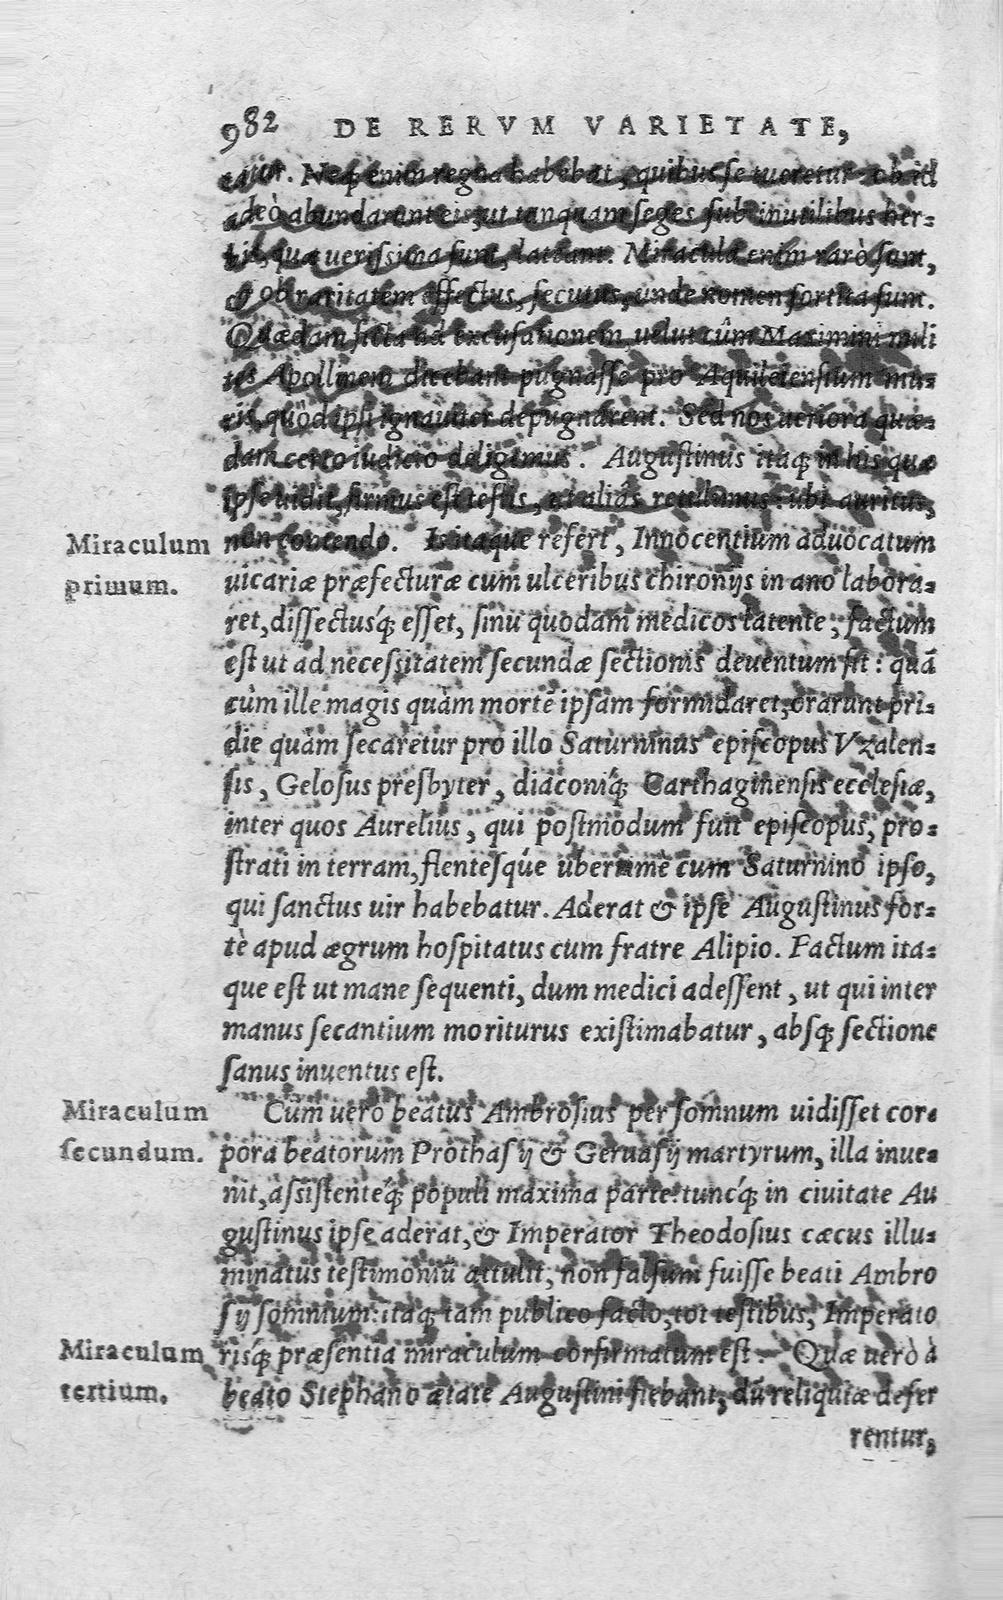 982 DE RERVM VARIETATE,
Neq́; enim regna habebat, quibus se tueretur: ob id
adeò abundarunt eis, ut tanquam seges sub inutilibus her-
bis, quæ uerissima sunt, lateant. Miracula enim rarò sunt,
& ob raritatem effectus, secutus, unde nomen sortita sunt.
Quædam ficta ad excusationem, uelut cûm Maximini mili
tes Apollinem dicebant pugnasse pro Aquileiensium mu-
ris, quòd ipsi ignauiter depugnarent. Sed nos ueriora quæ-
dam certo iudicio deligemus. Augustinus itaq; in his quæ
ipse uidit, firmus est testis, ut aliâs retulimus: ubi auritus,
non contendo. Is itaque refert, Innocentium aduocatum
Miraculum
primum.
uicariæ præfecturæ cum ulceribus chironijs in ano labora-
ret, dissectusq́; esset, sinu quodam medicos latente, factum
est ut ad necessitatem secundæ sectionis deuentum sit: quã
cùm ille magis quàm mortẽ ipsam formidaret, orarunt pri-
die quàm secaretur pro illo Saturninus episcopus Vzalen-
sis, Gelosus presbyter, diaconiq́; Carthaginensis ecclesiæ,
inter quos Aurelius, qui postmodum fuit episcopus, pro-
strati in terram, flentesq́ue uberrimè cum Saturnino ipso,
qui sanctus uir habebatur. Aderat & ipse Augustinus for-
tè apud ægrum hospitatus cum fratre Alipio. Factum ita-
que est ut mane sequenti, dum medici adessent, ut qui inter
manus secantium moriturus existimabatur, absq; sectione
sanus inuentus est.
Cùm uerò beatus Ambrosius per somnum uidisset cor-
Miraculum
secundum.
pora beatorum Prothasij & Geruasij martyrum, illa inue-
nit, assistenteq́; populi maxima parte: tuncq́; in ciuitate Au
gustinus ipse aderat, & Imperator Theodosius cæcus illu-
minatus testimoniũ attulit, non falsum fuisse beati Ambro
sij somnium: itaq; tam publico facto, tot testibus, Imperato
risq́; præsentia miraculum confirmatum est. Quæ uerò à
Miraculum
tertium.
beato Stephano ætate Augustini fiebant, dũ reliquiæ defer
rentur,